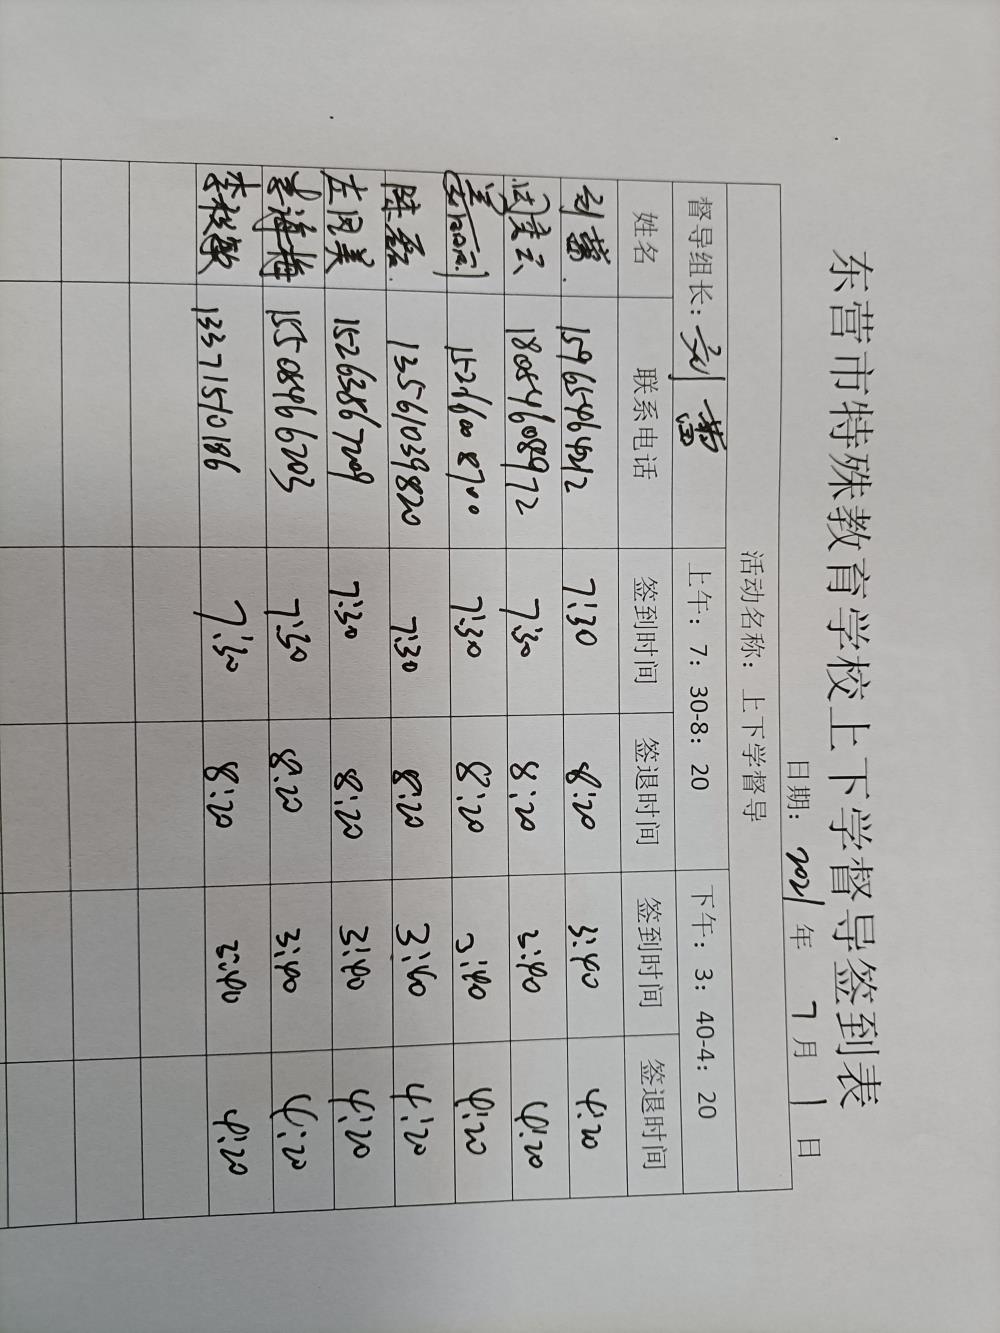 东营市特殊教育学校上下学督导签到表
日期: 2021 年 7 月 1 日
活动名称: 上下学督导
督导组长: 刘蕾 上午: 7: 30-8: 20 下午: 3: 40-4: 20
姓名 联系电话 签到时间 签退时间 签到时间 签退时间
刘蕾 15965464212 7:30 8:20 3:40 4:20
闫宾云 18054608972 7:30 8:20 3:40 4:20
7:30 8:20 3:40 4:20
陈磊 13561039820 7:30 8:20 3:40 4:20
左风美 15263867209 7:30 8:20 3:40 4:20
海梅 15508466203 7:30 8:20 3:40 4:20
李敏 13371510186 7:30 8:20 3:40 4:20